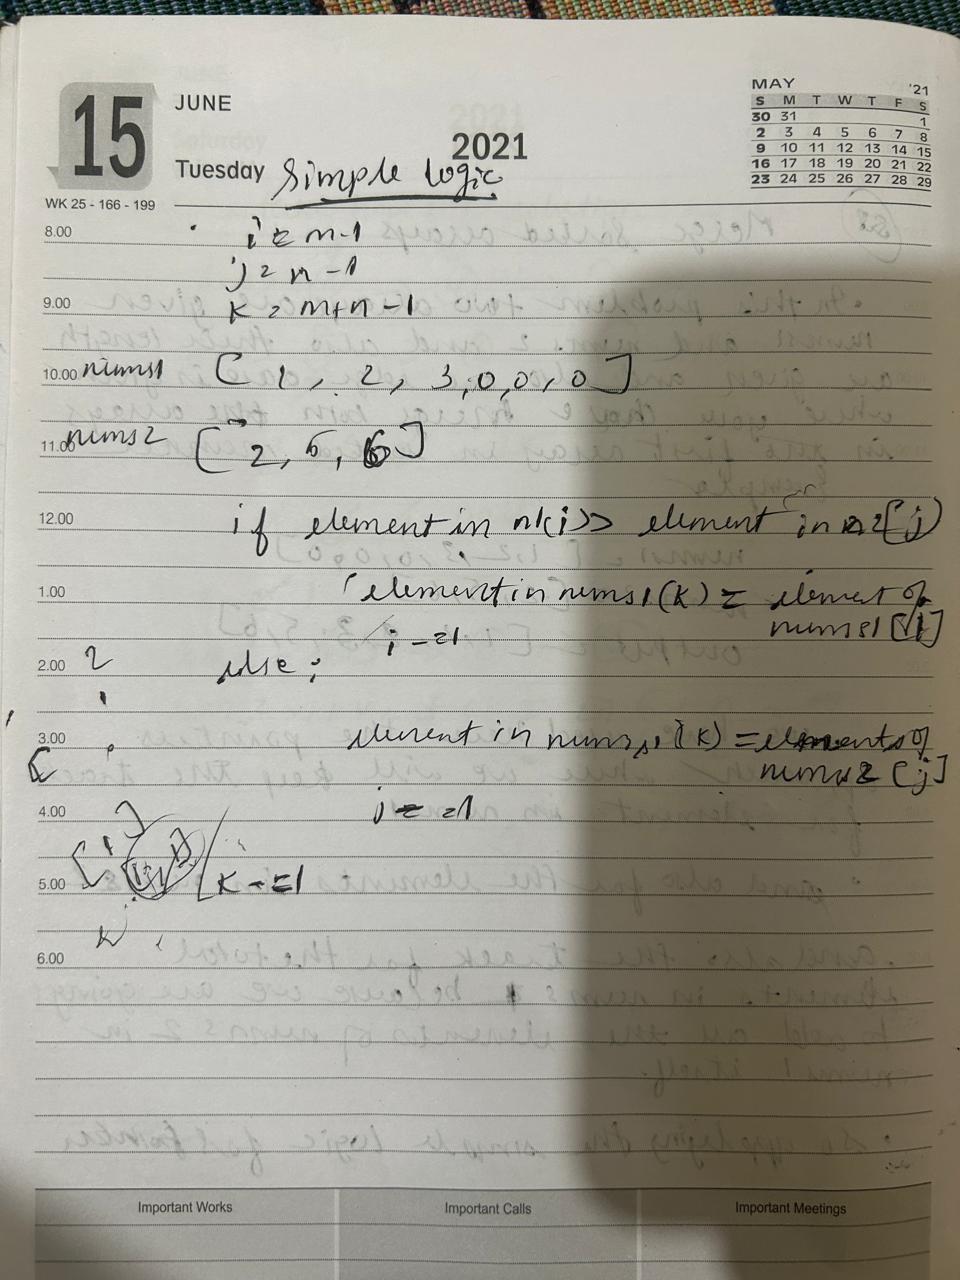 15
JUNE
Tuesday
2021
WK 25 - 166 - 199
MAY '21
S M T W T F S
30 31 1
2 3 4 5 6 7 8
9 10 11 12 13 14 15
16 17 18 19 20 21 22
23 24 25 26 27 28 29
Simple logic
8.00 i = m-1
j = n-1
9.00 k = m+n-1
10.00 nums1 [1, 2, 3, 0, 0, 0]
11.00 nums2 [2, 5, 6]
12.00 if element in n1(i) > element in n2[j]
1.00 element in nums1(k) = element of
nums1[i]
i -=1
2.00 2 else :
3.00 element in nums1(k) = elements of
nums2[j]
4.00 j -=1
5.00 k -=1
6.00
Important Works
Important Calls
Important Meetings